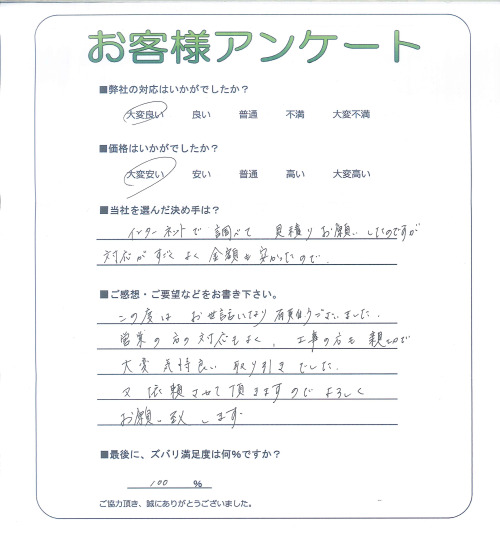 お客様アンケート
■弊社の対応はいかがでしたか？
大変良い 良い 普通 不満 大変不満
■価格はいかがでしたか？
大変安い 安い 普通 高い 大変高い
■当社を選んだ決め手は？
インターネットで調べて 見積りお願いしたのですが
対応がすごくよく金額も安かったので.
■ご感想・ご要望などをお書き下さい。
この度は お世話になり有難うございました.
営業の方の対応もよく、工事の方も親切で
大変気持良い 取り引きでした.
又依頼させて頂きますのでよろしく
お願い致します
■最後に、ズバリ満足度は何%ですか？
100 %
ご協力頂き、誠にありがとうございました。